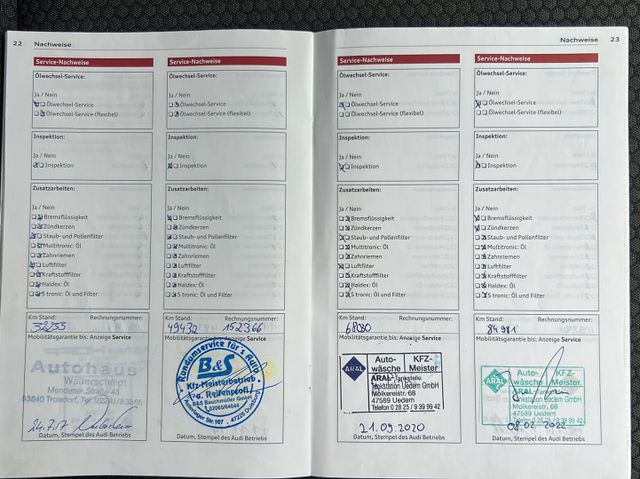 22 Nachweise
Service-Nachweise
Ölwechsel-Service:
Ja / Nein
Ölwechsel-Service
Ölwechsel-Service (flexibel)
Inspektion:
Ja / Nein
Inspektion
Zusatzarbeiten:
Ja / Nein
Bremsflüssigkeit
Zündkerzen
Staub- und Pollenfilter
Multitronic: Öl
Zahnriemen
Luftfilter
Kraftstofffilter
Haldex: Öl
S tronic: Öl und Filter
Km Stand: Rechnungsnummer:
Mobilitätsgarantie bis: Anzeige Service
Autohaus
Wallerscheidt
53840 Troisdorf, Tel.
24.7.17
Datum, Stempel des Audi Betriebs
Service-Nachweise
Ölwechsel-Service:
Ja / Nein
Ölwechsel-Service
Ölwechsel-Service (flexibel)
Inspektion:
Ja / Nein
Inspektion
Zusatzarbeiten:
Ja / Nein
Bremsflüssigkeit
Zündkerzen
Staub- und Pollenfilter
Multitronic: Öl
Zahnriemen
Luftfilter
Kraftstofffilter
Haldex: Öl
S tronic: Öl und Filter
Km Stand: Rechnungsnummer:
49432 152366
Mobilitätsgarantie bis: Anzeige Service
Rundumservice für's Auto
B&S
Kfz-Meisterbetrieb
u. Reifenprofi
B&S Bauchmüller GmbH
02065/54544
Datum, Stempel des Audi Betriebs
Nachweise 23
Service-Nachweise
Ölwechsel-Service:
Ja / Nein
Ölwechsel-Service
Ölwechsel-Service (flexibel)
Inspektion:
Ja / Nein
Inspektion
Zusatzarbeiten:
Ja / Nein
Bremsflüssigkeit
Zündkerzen
Staub- und Pollenfilter
Multitronic: Öl
Zahnriemen
Luftfilter
Kraftstofffilter
Haldex: Öl
S tronic: Öl und Filter
Km Stand: Rechnungsnummer:
68080
Mobilitätsgarantie bis: Anzeige Service
ARAL Auto- KFZ-
wäsche Meister
ARAL
Molkereistr. 68
47589 Uedem
Telefon 0 28 25 / 9 39 99 42
21.09.2020
Datum, Stempel des Audi Betriebs
Service-Nachweise
Ölwechsel-Service:
Ja / Nein
Ölwechsel-Service
Ölwechsel-Service (flexibel)
Inspektion:
Ja / Nein
Inspektion
Zusatzarbeiten:
Ja / Nein
Bremsflüssigkeit
Zündkerzen
Staub- und Pollenfilter
Multitronic: Öl
Zahnriemen
Luftfilter
Kraftstofffilter
Haldex: Öl
S tronic: Öl und Filter
Km Stand: Rechnungsnummer:
84981
Mobilitätsgarantie bis: Anzeige Service
ARAL Auto- KFZ-
wäsche Meister
Uedem GmbH
Molkereistr. 68
47589 Uedem
Telefon 0 28 25 / 9 39 99 42
08.02.2022
Datum, Stempel des Audi Betriebs